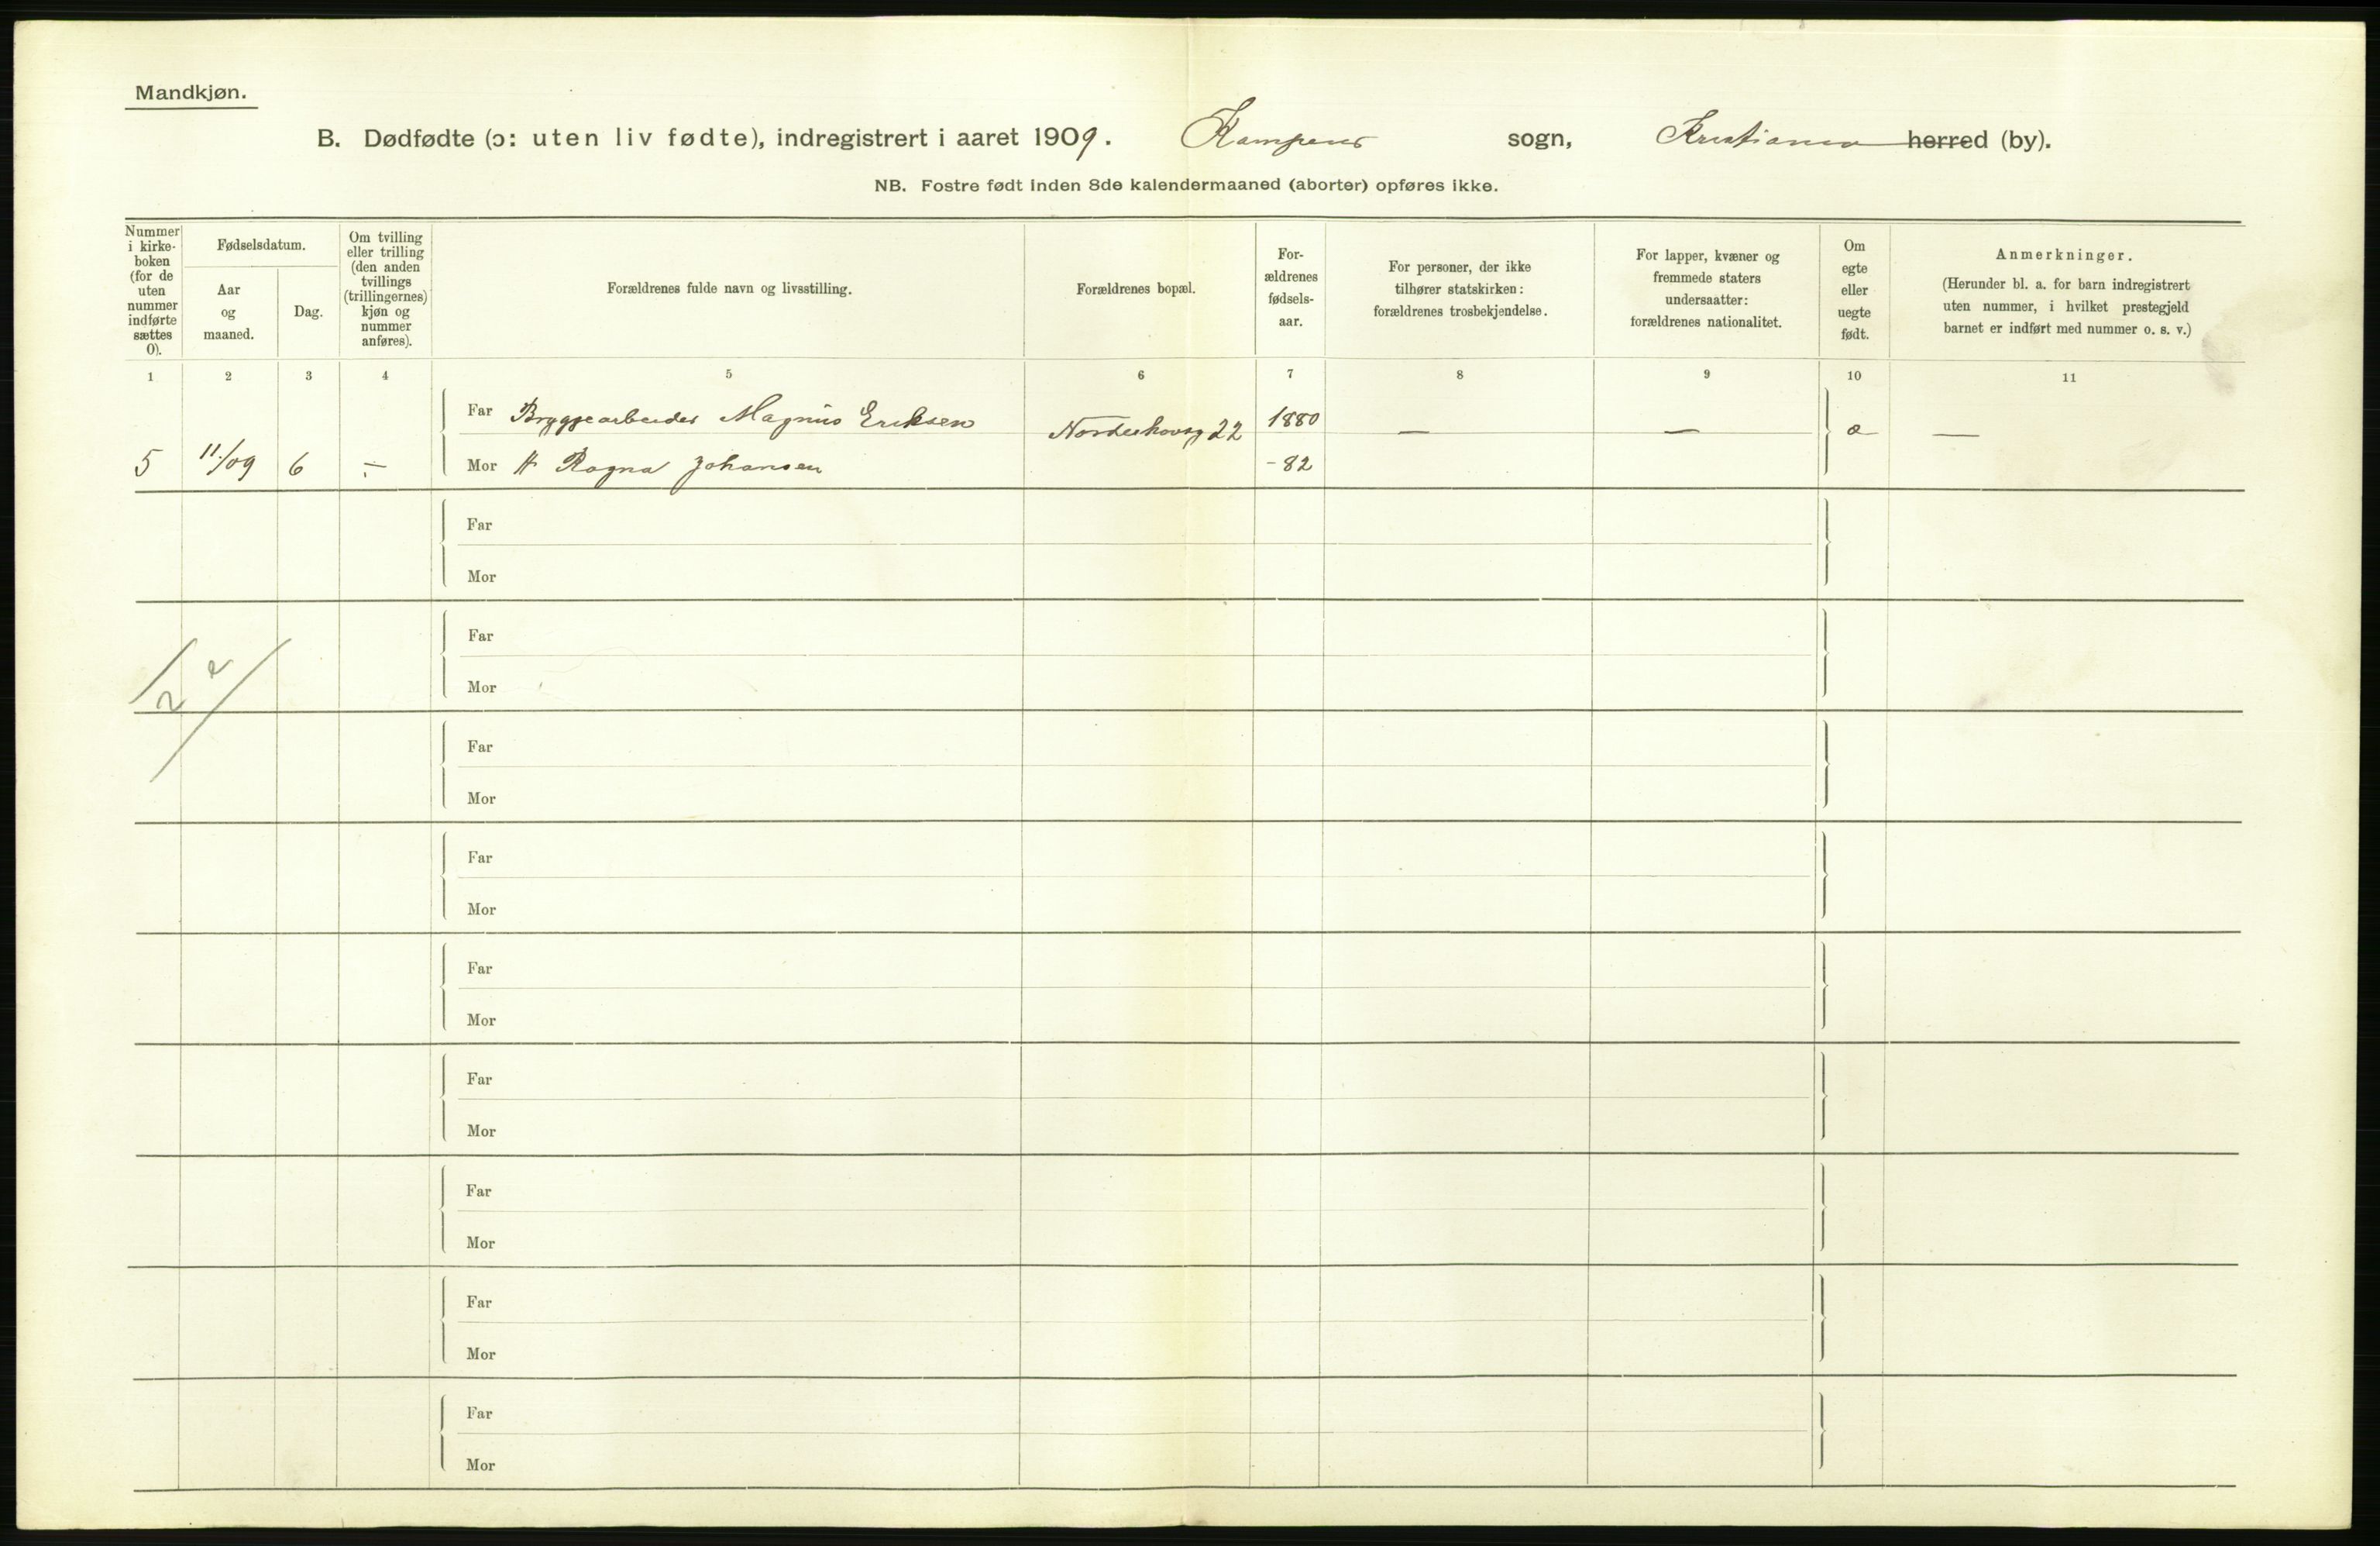 Mandkjøn.
B. Dødfødte (ɔ: uten liv fødte), indregistrert i aaret 1909. Kampens sogn, Kristiania herred (by).
NB. Fostre født inden 8de kalendermaaned (aborter) opføres ikke.
Nummer
i kirke-
boken
(for de
uten
nummer
indførte
sættes
0).
Fødselsdatum.
Aar
og
maaned.
Dag.
Om tvilling
eller trilling
(den anden
tvillings
(trillingernes)
kjøn og
nummer
anføres).
Forældrenes fulde navn og livsstilling.
Forældrenes bopæl.
For-
ældrenes
fødsels-
aar.
For personer, der ikke
tilhører statskirken:
forældrenes trosbekjendelse.
For lapper, kvæner og
fremmede staters
undersaatter:
forældrenes nationalitet.
Om
egte
eller
uegte
født.
Anmerkninger.
(Herunder bl. a. for barn indregistrert
uten nummer, i hvilket prestegjeld
barnet er indført med nummer o. s. v.)
1 2 3 4 5 6 7 8 9 10 11
Far Bryggearbeider Magnus Eriksen Norderhovsg 22 1880 — — e —
5 11/09 6 — Mor H Ragna Johansen - 82
Far
Mor
Far
2 e
Mor
Far
Mor
Far
Mor
Far
Mor
Far
Mor
Far
Mor
Far
Mor
Far
Mor